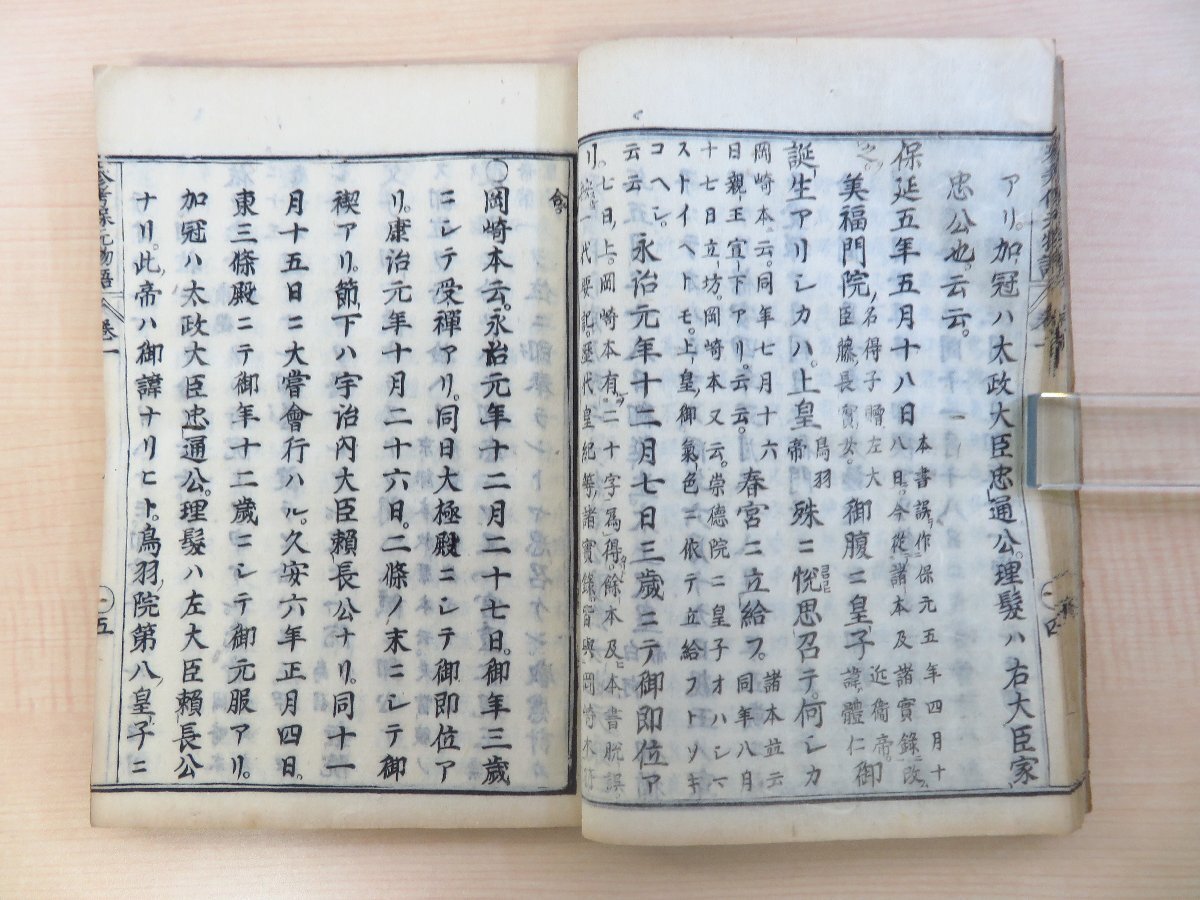 アリ。加冠ハ太政大臣忠通公。理髮ハ右大臣家
忠公也。云云。
保延五年五月十八日
本書誤作保元五年四月十
八日。今從諸本及諸實錄改
之。
美福門院
名得子贈左大
臣藤長實女。
御腹ニ皇子
近衞帝。
諱體仁
御
誕生アリシカハ。上皇
鳥羽
帝
殊ニ悅思召テ。何シカ
岡崎本云。同年七月十六
日親王宣下アリ。云云。
春宮ニ立給フ。
諸本竝云
同年八月
十七日立坊。岡崎本又云。崇德院ニ皇子オハシマ
ストイヘトモ。上皇御氣色ニ依テ立給フトソキ
コヘシ。
云云
永治元年十二月七日三歲ニテ御即位ア
リ。
七日上。岡崎本有二十字爲得。餘本及本書脫誤。
一代要記。歷代皇紀等諸實錄皆與岡崎本符
合。
〇岡崎本云。永治元年十二月二十七日。御年三歲
ニシテ受禪アリ。同日大極殿ニシテ御即位ア
リ。康治元年十月二十六日。二條ノ末ニシテ御
禊アリ。節下ハ宇治內大臣賴長公ナリ。同十一
月十五日ニ大嘗會行ハル。久安六年正月四日。
東三條殿ニテ御年十二歲ニシテ御元服アリ。
加冠ハ太政大臣忠通公。理髮ハ左大臣賴長公
ナリ。此帝ハ御諱ナリヒト。鳥羽院第八皇子ニ
參考保元物語
卷一
五